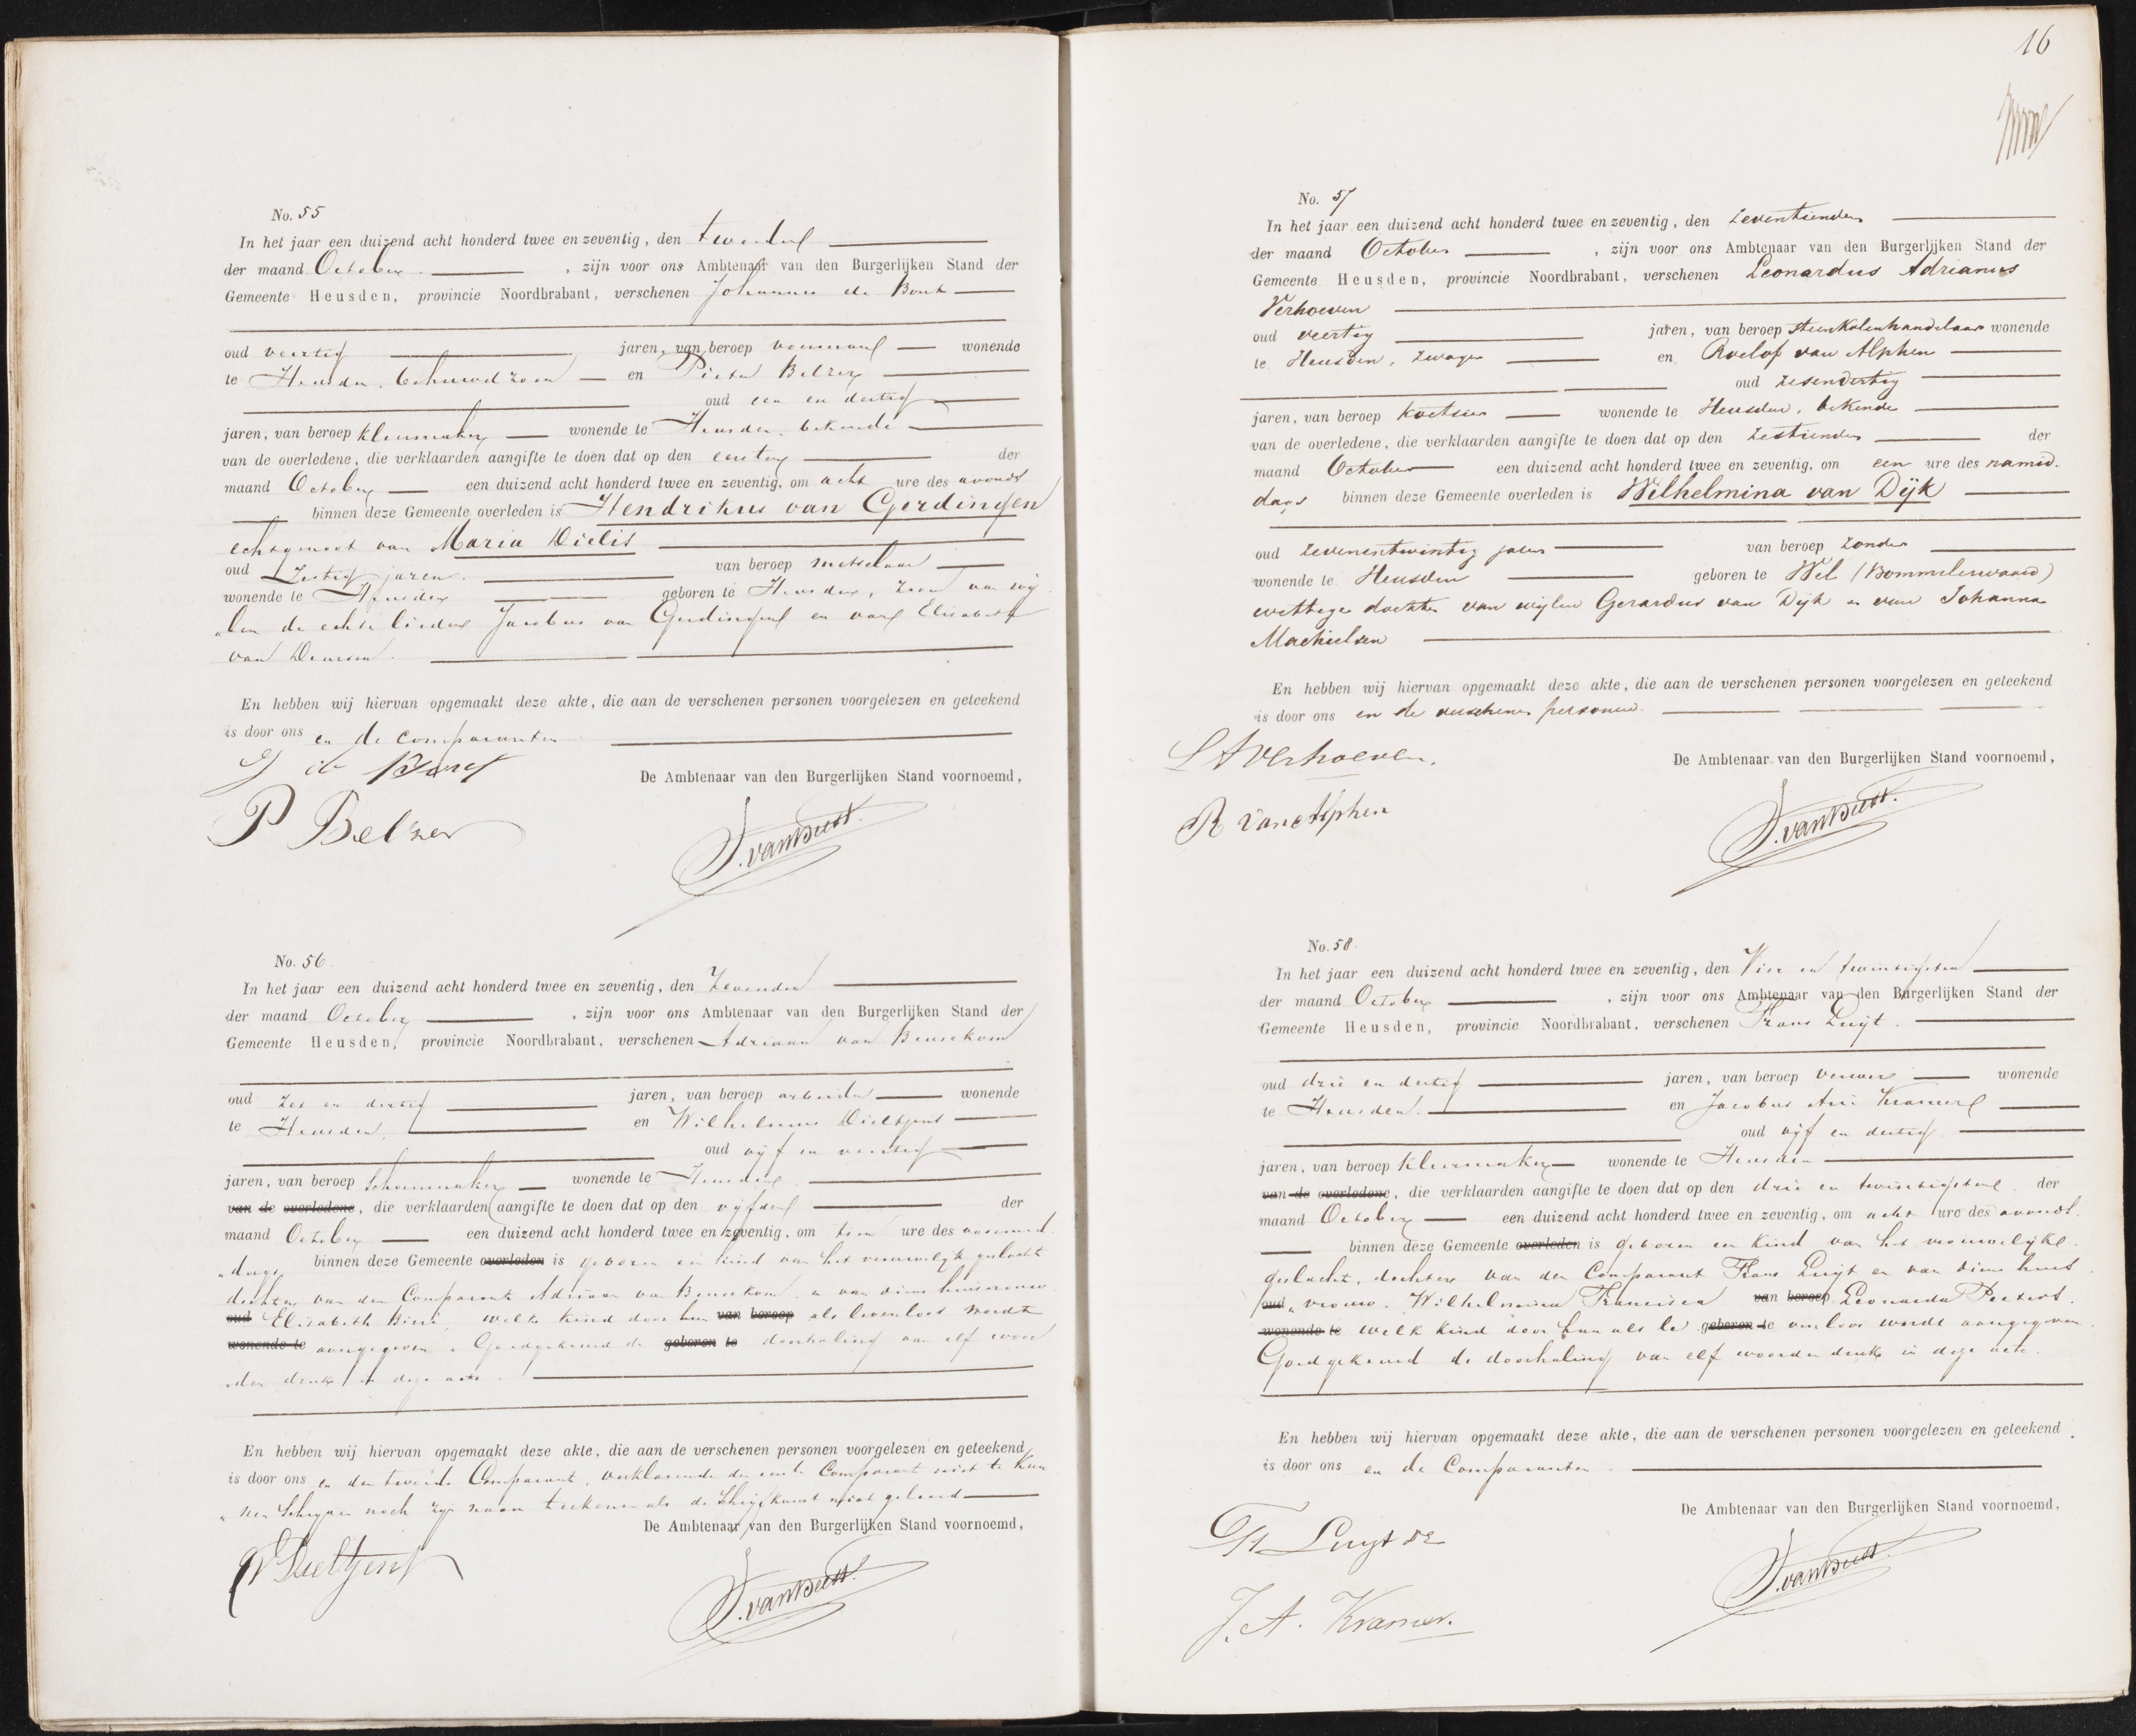 No. 55
In het jaar een duizend acht honderd twee en zeventig, den tweeden
der maand October , zijn voor ons Ambtenaar van den Burgerlijken Stand der
Gemeente Heusden, provincie Noordbrabant, verschenen Johannes de Bont
oud veertig jaren, van beroep voerman wonende
te Heusden, behuwdzoon en Pieter Belzer
oud een en dertig
jaren, van beroep kleermaker wonende te Heusden, bekende
van de overledene, die verklaarden aangifte te doen dat op den eersten der
maand October een duizend acht honderd twee en zeventig, om acht ure des avonds
binnen deze Gemeente overleden is Hendrikus van Gerdingen
echtgenoot van Maria Dielis
oud Zestig jaren van beroep metselaar
wonende te Heusden geboren te Heusden, zoon van wij
„len de echte lieden Jacobus van Gerdingen en van Elisabeth
van Deursen.
En hebben wij hiervan opgemaakt deze akte, die aan de verschenen personen voorgelezen en geteekend
is door ons en de comparanten
J de Bont
P Belzer
De Ambtenaar van den Burgerlijken Stand voornoemd,
No. 56.
In het jaar een duizend acht honderd twee en zeventig, den Zevenden
der maand October , zijn voor ons Ambtenaar van den Burgerlijken Stand der
Gemeente Heusden, provincie Noordbrabant, verschenen Adriaan van Beusekom
oud zes en dertig jaren, van beroep arbeider wonende
te Heusden, en Wilhelmus Dieltjens
oud vijf en veertig
jaren, van beroep schoenmaker wonende te Heusden
van de overledene, die verklaarden aangifte te doen dat op den vijfden der
maand October een duizend acht honderd twee en zeventig, om tien ure des voormid
„dags binnen deze Gemeente overleden is geboren een kind van het vrouwelijk geslacht
dochter van den Comparant Adriaan van Beusekom en van diens huisvrouw
oud Elisabeth welk kind door hun van beroep als levenloos wordt
wonende te aangegeven. Goedgekeurd de geboren te doorhaling van elf woor
„den druks in deze acte.
En hebben wij hiervan opgemaakt deze akte, die aan de verschenen personen voorgelezen en geteekend
is door ons en den tweede Comparant, verklarende de eerste Comparant niet te kun
„nen schrijven noch zijn naam teekenen als de schrijfkunst niet geleerd
De Ambtenaar van den Burgerlijken Stand voornoemd,
W Dieltjens
16
No. 57
In het jaar een duizend acht honderd twee en zeventig, den zeventienden
der maand October , zijn voor ons Ambtenaar van den Burgerlijken Stand der
Gemeente Heusden, provincie Noordbrabant, verschenen Leonardus Adrianus
Verhoeven
oud veertig jaren, van beroep steenkolenhandelaar wonende
te Heusden, zwager en Roelof van Alphen
oud zesendertig
jaren, van beroep koetsier wonende te Heusden, bekende
van de overledene, die verklaarden aangifte te doen dat op den zestienden der
maand October een duizend acht honderd twee en zeventig, om een ure des namid.
dags binnen deze Gemeente overleden is Wilhelmina van Dijk
oud zevenentwintig jaren van beroep zonder
wonende te Heusden geboren te Wel (Bommelerwaard)
wettige dochter van wijlen Gerardus van Dijk en van Johanna
Machielsen
En hebben wij hiervan opgemaakt deze akte, die aan de verschenen personen voorgelezen en geteekend
is door ons en de verschenen personen.
L A Verhoeven.
De Ambtenaar van den Burgerlijken Stand voornoemd,
R van Alphen
No. 58.
In het jaar een duizend acht honderd twee en zeventig, den Vier en twintigsten
der maand October , zijn voor ons Ambtenaar van den Burgerlijken Stand der
Gemeente Heusden, provincie Noordbrabant, verschenen Frans Luijt.
oud drie en dertig jaren, van beroep verwer wonende
te Heusden. en Jacobus Arie Kramer
oud vijf en dertig
jaren, van beroep kleermaker wonende te Heusden
van de overledene, die verklaarden aangifte te doen dat op den drie en twintigsten der
maand October een duizend acht honderd twee en zeventig, om acht ure des avonds.
binnen deze Gemeente overleden is geboren een kind van het vrouwelijke
geslacht, dochter van den Comparant Frans Luijt en van diens huis
oud „vrouw. Wilhelmina Francisca van beroep Leonarda Peeters.
wonende te welk kind door hun als le geboren te venloos wordt aangegeven
Goedgekeurd de doorhaling van elf woorden druks in deze acte.
En hebben wij hiervan opgemaakt deze akte, die aan de verschenen personen voorgelezen en geteekend
is door ons en de Comparanten.
De Ambtenaar van den Burgerlijken Stand voornoemd,
J. A. Kramer.